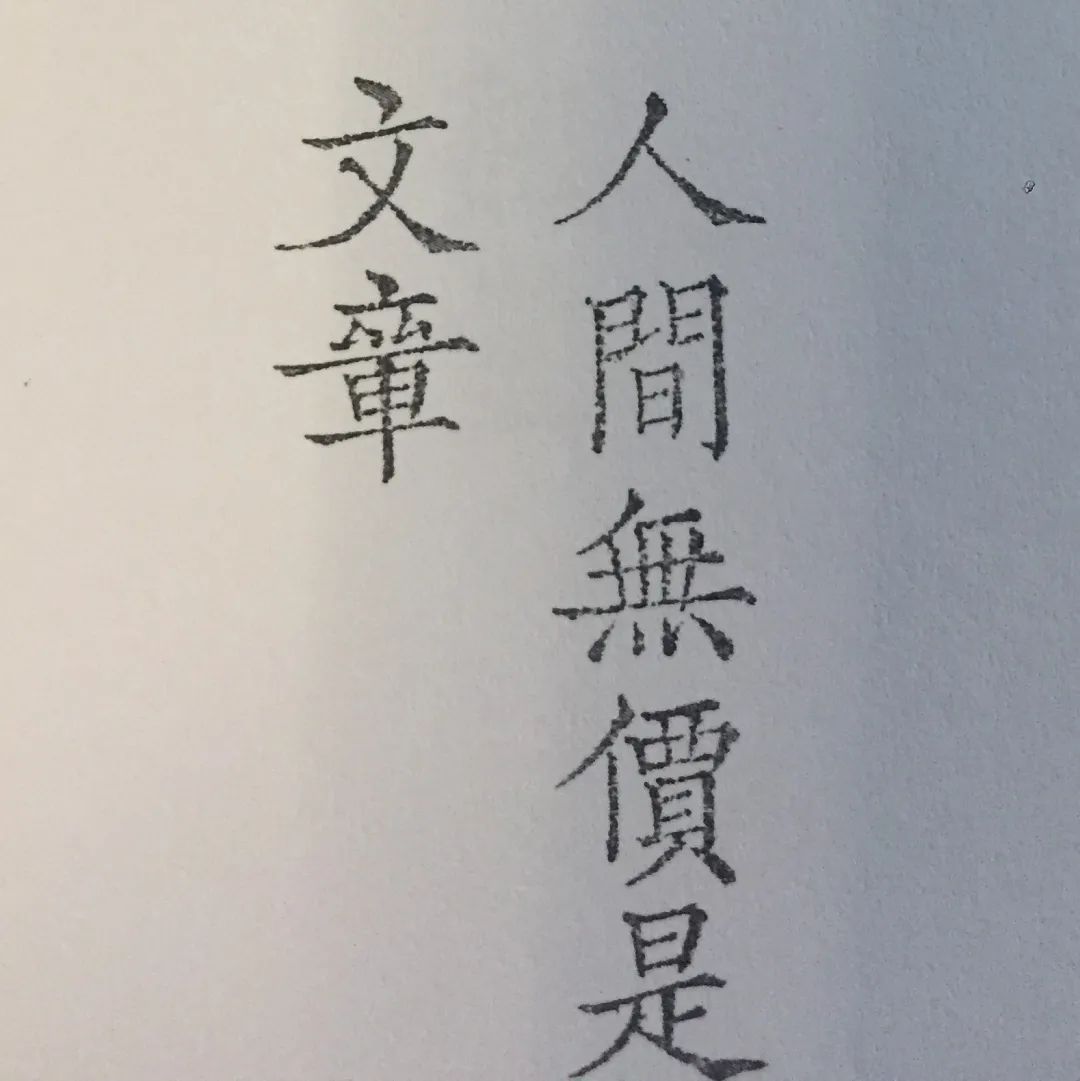 人間無價是
文章